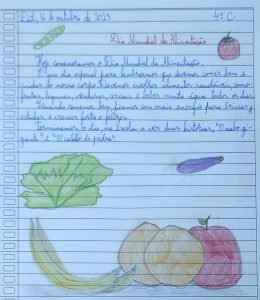 16 de outubro de 2025 4º C
Dia Mundial da Alimentação
Hoje comemoramos o Dia Mundial da Alimentação.
É um dia especial para lembrarmos que devemos comer bem e
cuidar do nosso corpo. Devemos escolher alimentos saudáveis, como
frutas, legumes, verduras, cereais e beber muita água todos os dias.
Quando comemos bem, ficamos com mais energia para brincar,
estudar e crescer forte e felizes.
Terminamos o dia, na escola a ver duas histórias, "O nabo gi-
gante" e "O caldo de pedra".